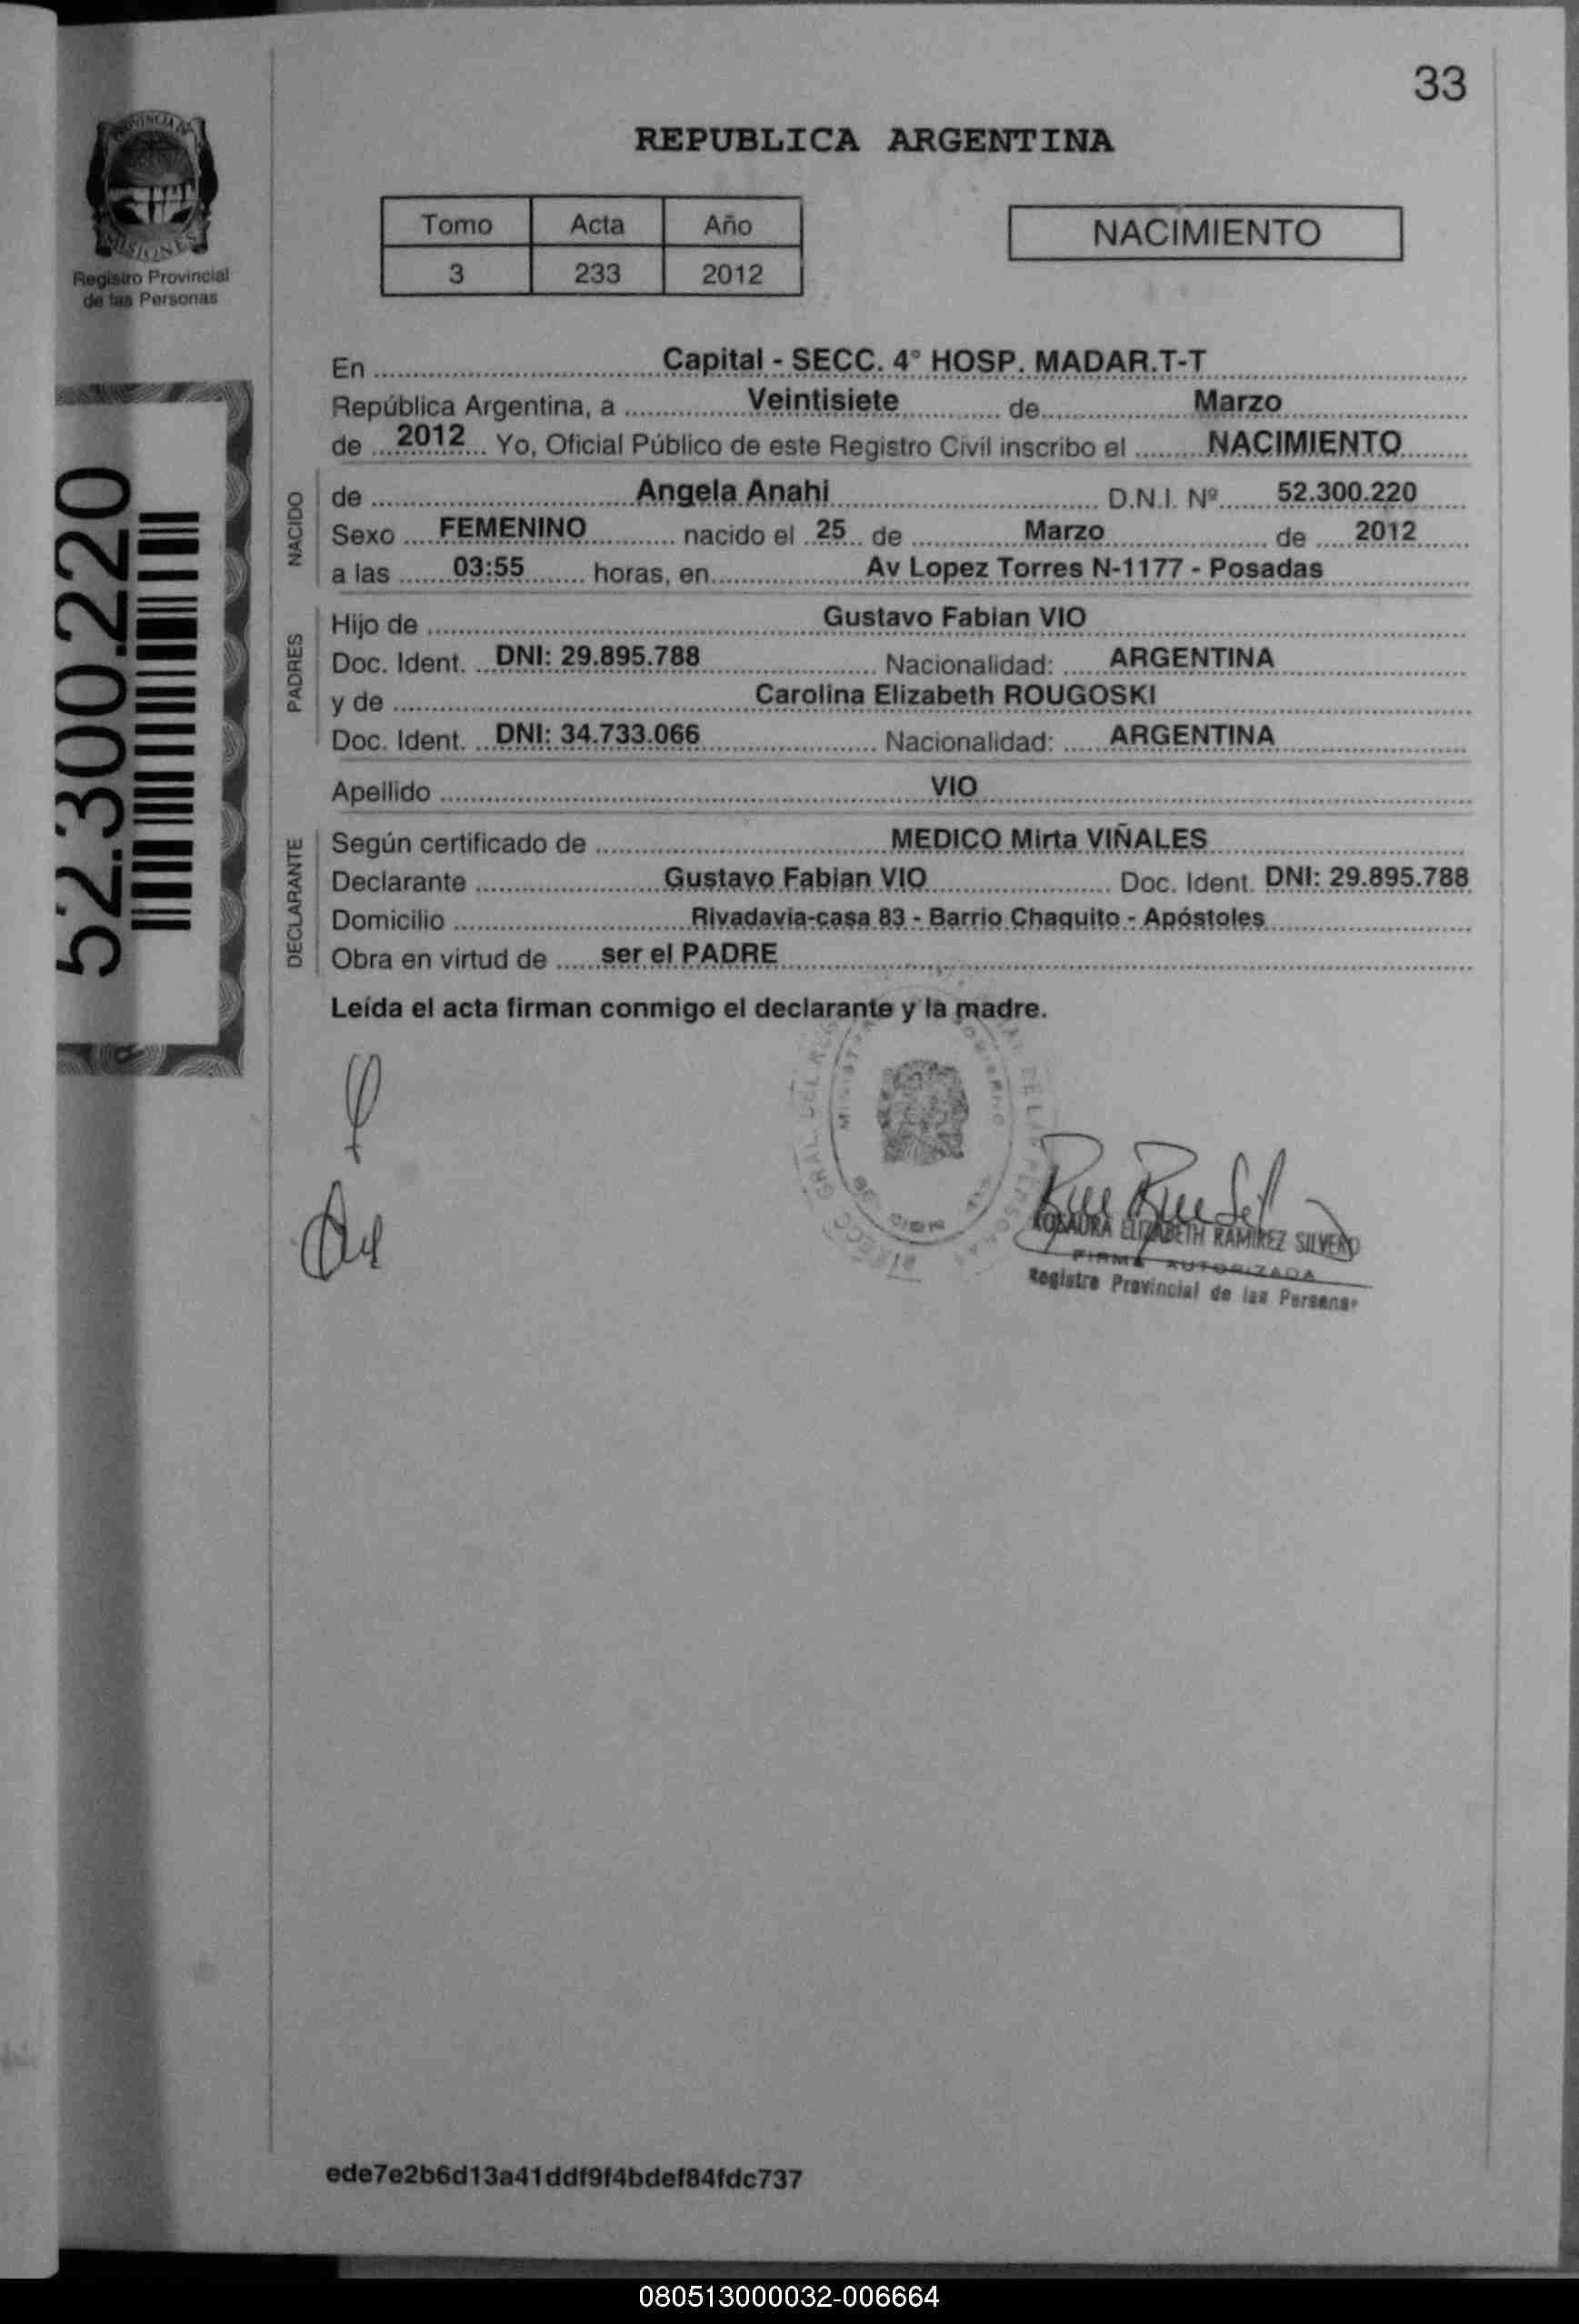 33
PROVINCIA DE
MISIONES
Registro Provincial
de las Personas
REPUBLICA ARGENTINA
Tomo Acta Año
3 233 2012
NACIMIENTO
En Capital - SECC. 4° HOSP. MADAR.T-T
República Argentina, a Veintisiete de Marzo
de 2012 Yo, Oficial Público de este Registro Civil inscribo el NACIMIENTO
NACIDO
de Angela Anahi D.N.I. Nº 52.300.220
Sexo FEMENINO nacido el 25 de Marzo de 2012
a las 03:55 horas, en Av Lopez Torres N-1177 - Posadas
PADRES
Hijo de Gustavo Fabian VIO
Doc. Ident. DNI: 29.895.788 Nacionalidad: ARGENTINA
y de Carolina Elizabeth ROUGOSKI
Doc. Ident. DNI: 34.733.066 Nacionalidad: ARGENTINA
Apellido VIO
DECLARANTE
Según certificado de MEDICO Mirta VIÑALES
Declarante Gustavo Fabian VIO Doc. Ident. DNI: 29.895.788
Domicilio Rivadavia-casa 83 - Barrio Chaquito - Apóstoles
Obra en virtud de ser el PADRE
Leída el acta firman conmigo el declarante y la madre.
52.300.220
ROSAURA ELIZABETH RAMIREZ SILVERO
FIRMA AUTORIZADA
Registro Provincial de las Personas
ede7e2b6d13a41ddf9f4bdef84fdc737
080513000032-006664